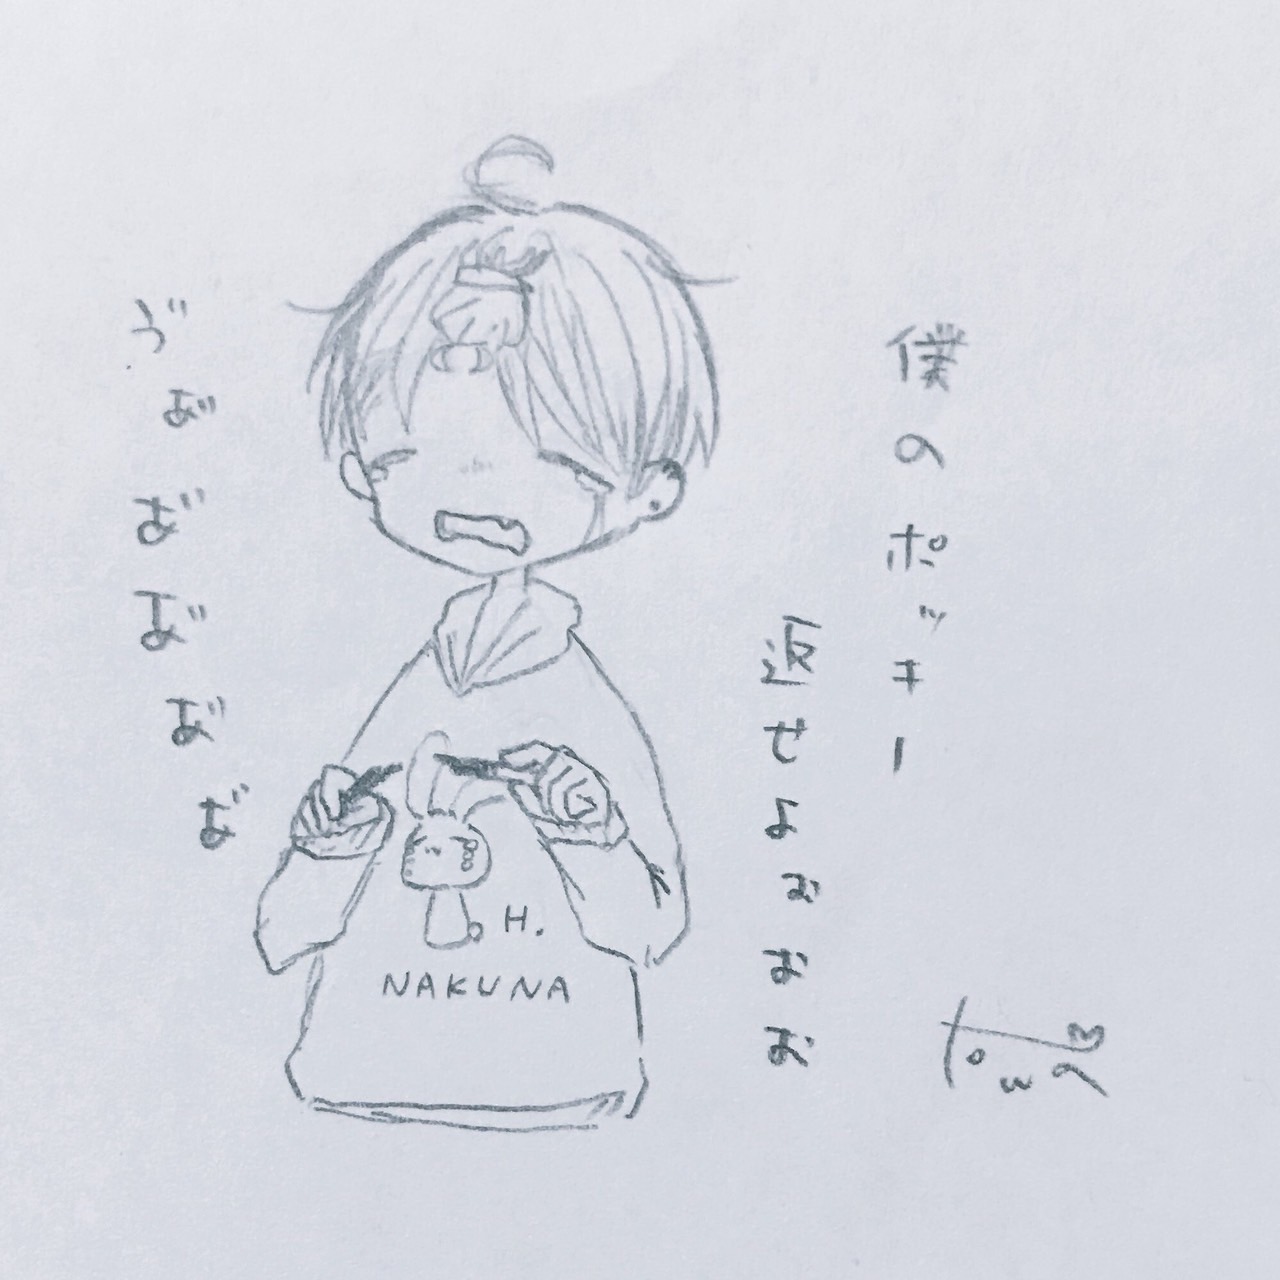 僕のポッキー
返せよぉおお
ゔぁ゙あ゙あ゙あ゙あ゙
H.
NAKUNA
towa